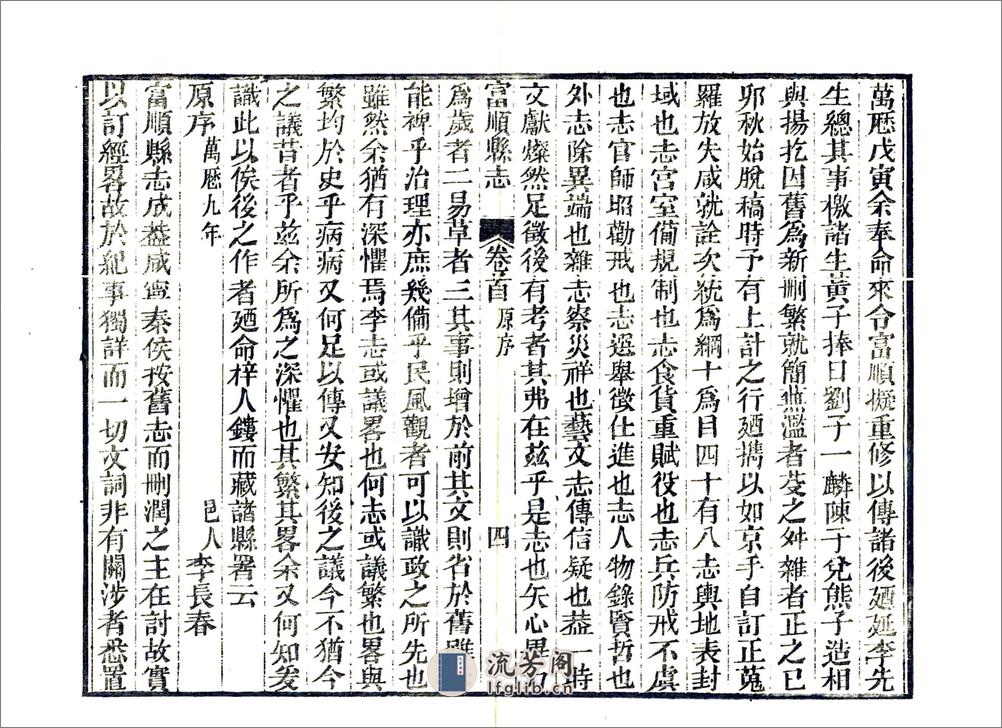 萬厯戊寅余奉命來令富順擬重修以傳諸後廼延李先
生總其事檄諸生黃子捧日劉子一麟陳子兌熊子造相
與揚扢因舊為新刪繁就簡蕪濫者芟之舛雜者正之已
夘秋始脫稿時予有上計之行廼攜以如京手自訂正蒐
羅放失咸就詮次統爲綱十爲目四十有八志輿地表封
域也志宮室備規制也志食貨重賦役也志兵防戒不虞
也志官師昭勸戒也志選舉徵仕進也志人物錄賢哲也
外志除異端也雜志察災祥也藝文志傳信疑也葢一時
文獻燦然足徵後有考者其弗在兹乎是志也矢心畢力
富順縣志 卷首 原序 四
爲歲者二易草者三其事則增於前其文則省於舊雖
能裨乎治理亦庶幾備乎民風觀者可以識政之所先也
雖然余猶有深懼焉李志或議畧也何志或議繁也畧與
繁均於史乎病病又何足以傳又安知後之議今不猶今
之議昔者乎兹余所爲之深懼也其繁其畧余又何知爰
識此以俟後之作者廼命梓人鏤而藏諸縣署云
原序 萬厯九年 邑人 李長春
富順縣志成葢咸寧秦侯按舊志而刪潤之主在討故實
以訂經畧故於紀事獨詳而一切文詞非有關涉者悉置
流芳阁
lfglib.cn